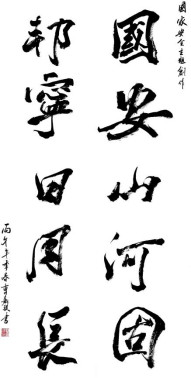 国家安全主题创作
國安山河固
邦寧日月長
丙午年春
書